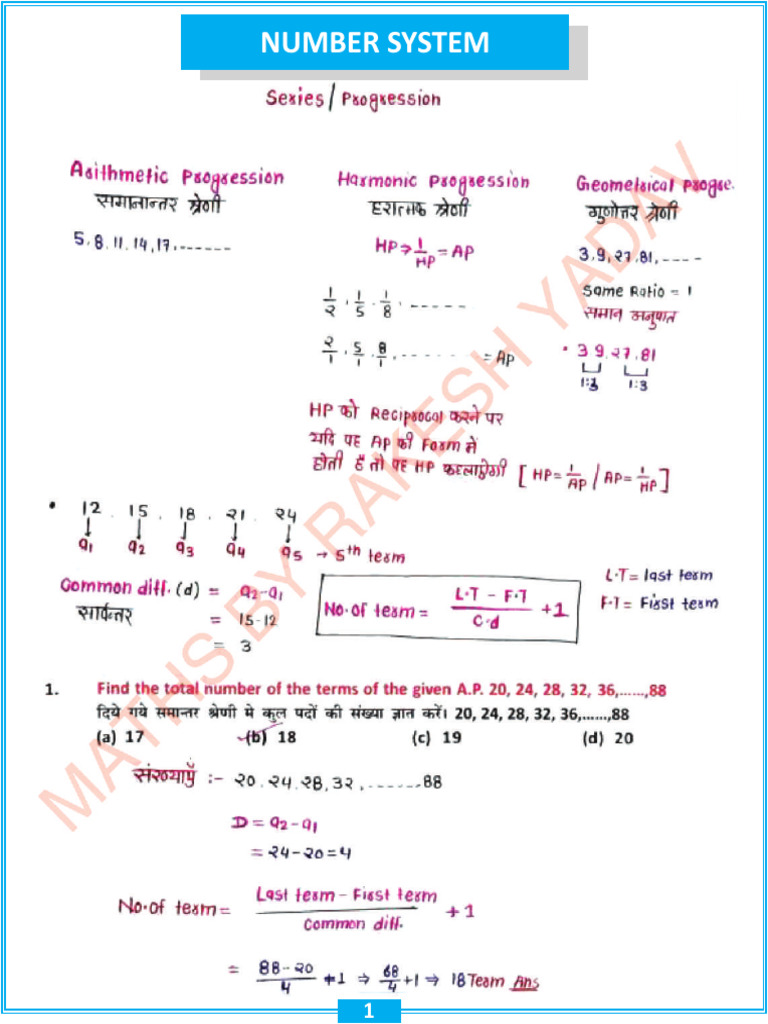 NUMBER SYSTEM
Series/Progression
Arithmetic Progression
समानान्तर श्रेणी
5,8,11,14,17,-------
Harmonic Progression
हरात्मक श्रेणी
HP → 1/HP = AP
1/2, 1/5, 1/8, ------
2/1, 5/1, 8/1, ------- = AP
HP को Reciprocal करने पर
यदि यह AP की Form में
होती है तो यह HP कहलाऐगी [HP = 1/AP / AP = 1/HP]
Geometrical Progre.
गुणोत्तर श्रेणी
3,9,27,81,----
Same Ratio = 1
समान अनुपात
• 3 9, 27, 81
1:3 1:3
• 12, 15, 18, 21, 24
a1 a2 a3 a4 a5 → 5th term
Common diff. (d) = a2-a1
सार्वन्तर = 15-12
= 3
No. of term = L.T - F.T / C.d +1
L.T = last term
F.T = First term
1. Find the total number of the terms of the given A.P. 20, 24, 28, 32, 36,......,88
दिये गये समान्तर श्रेणी मे कुल पदों की संख्या ज्ञात करें। 20, 24, 28, 32, 36,......,88
(a) 17 (b) 18 (c) 19 (d) 20
संख्याएँ :- 20, 24, 28, 32, .......88
D = a2-a1
= 24-20=4
No. of term = Last term - First term / Common diff. +1
= 88-20/4 +1 ⇒ 68/4 +1 ⇒ 18 Team Ans
1
MATHS BY RAKESH YADAV